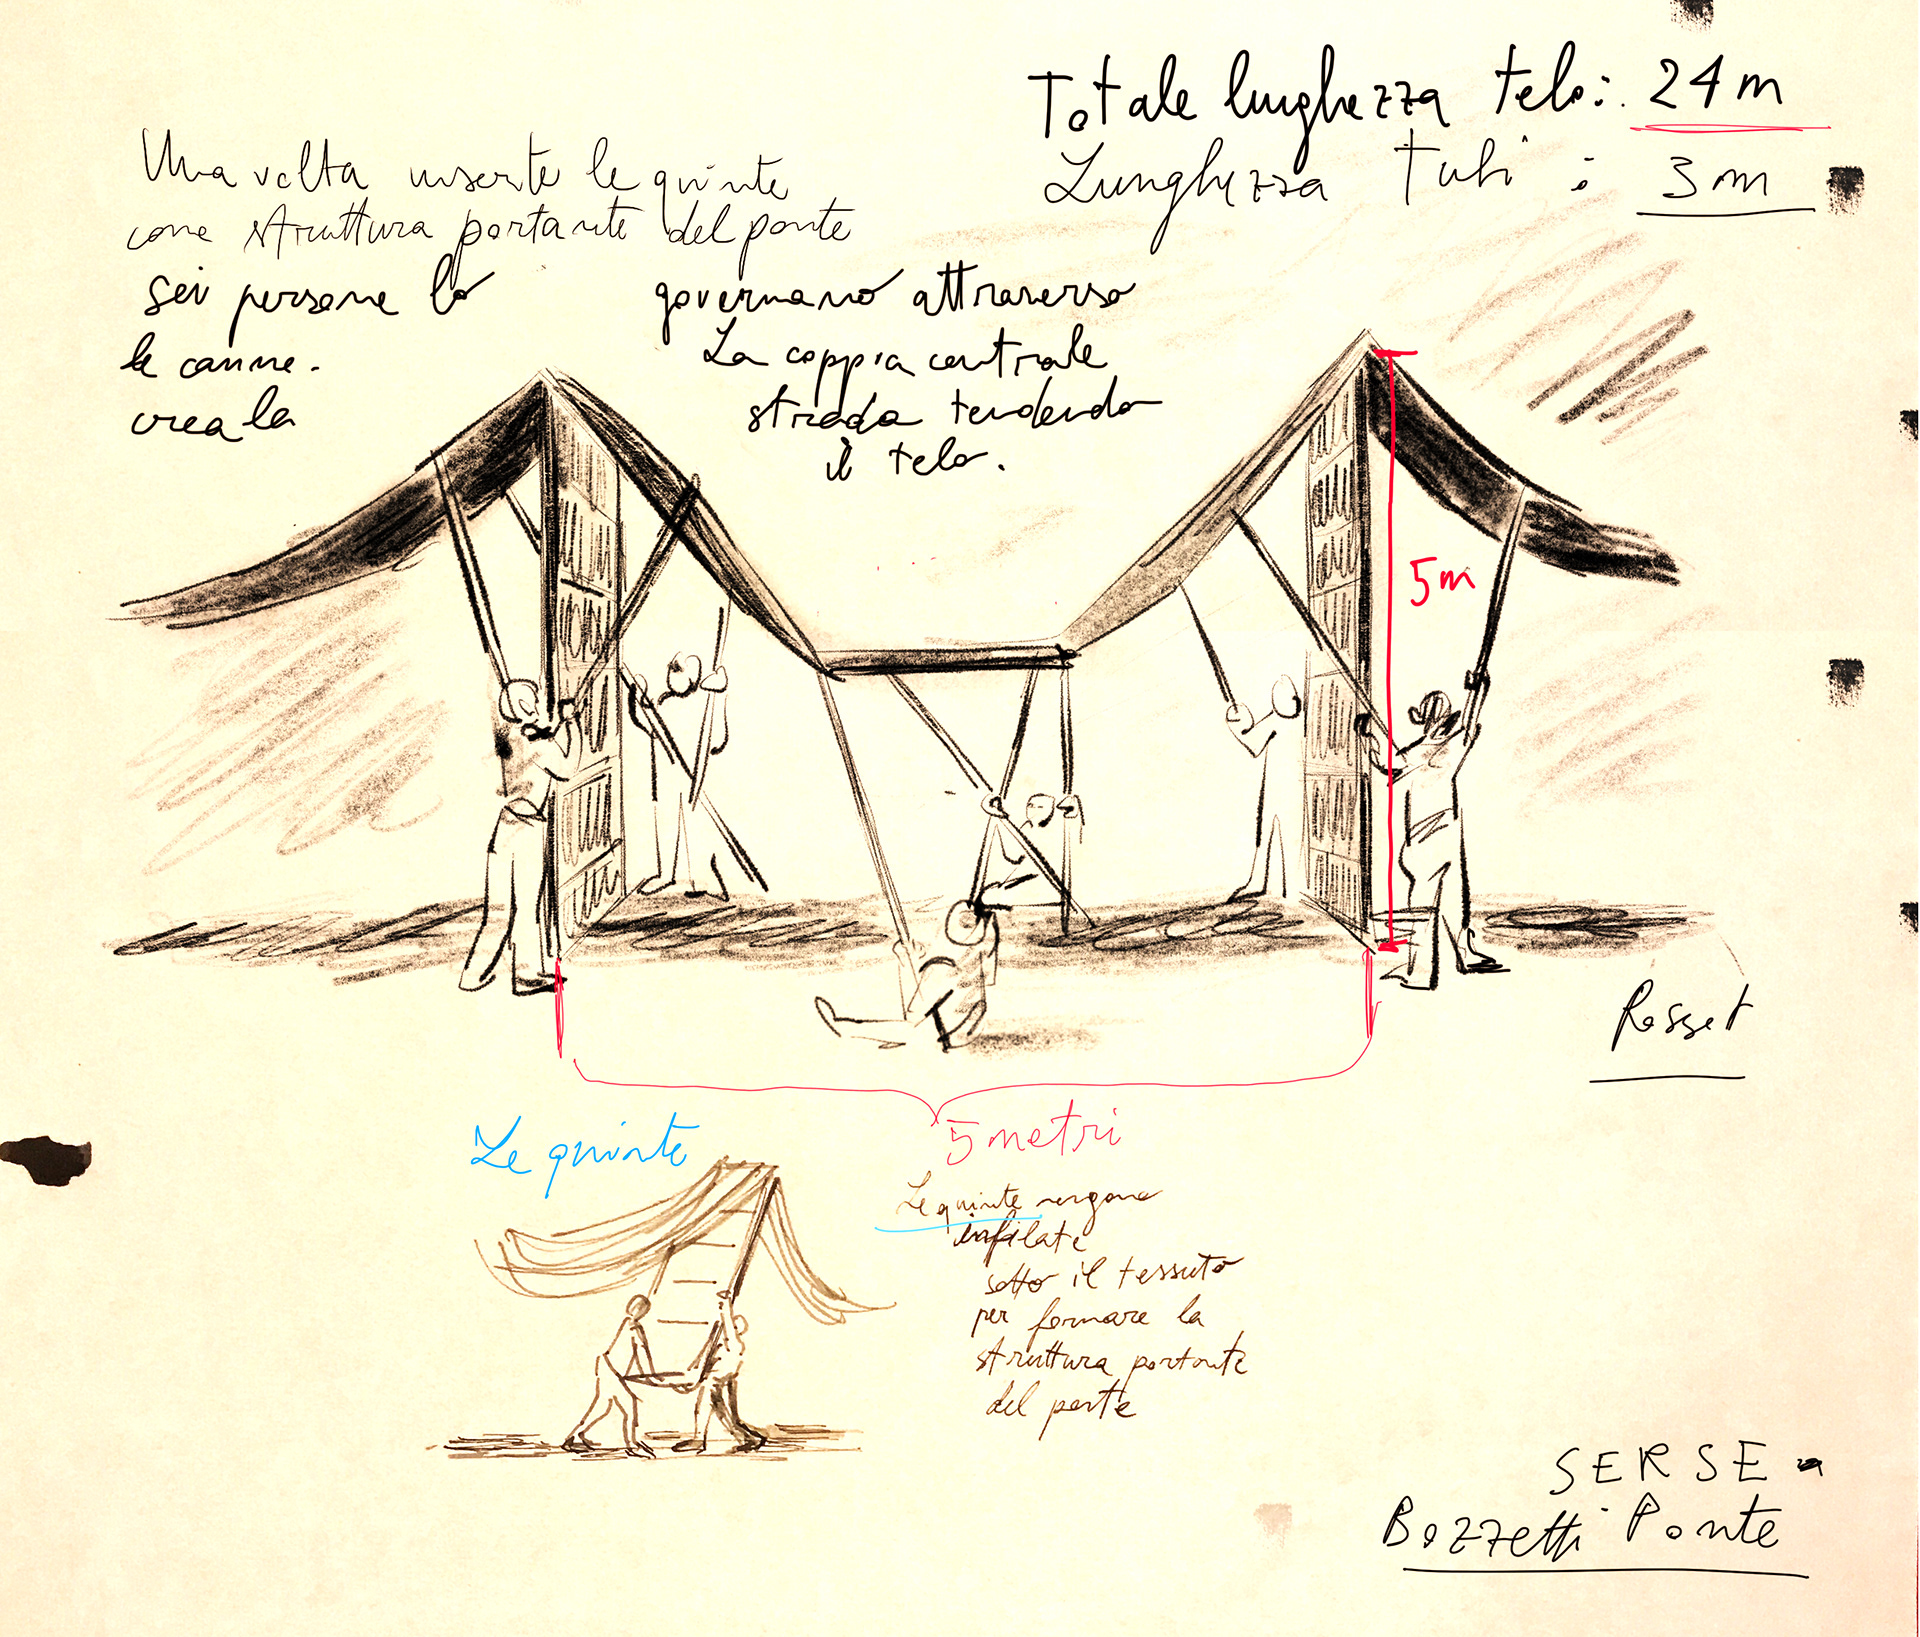 Totale lunghezza telo: 24 m
Lunghezza Tubi : 3 m
Una volta inserite le quinte
come struttura portante del ponte
sei persone lo governano attraverso
le canne. La coppia centrale
crea la strada tendendo
il telo.
5m
Rosset
5 metri
Le quinte
Le quinte vengono
infilate
sotto il tessuto
per formare la
struttura portante
del ponte
SERSE -
Bozzetti Ponte